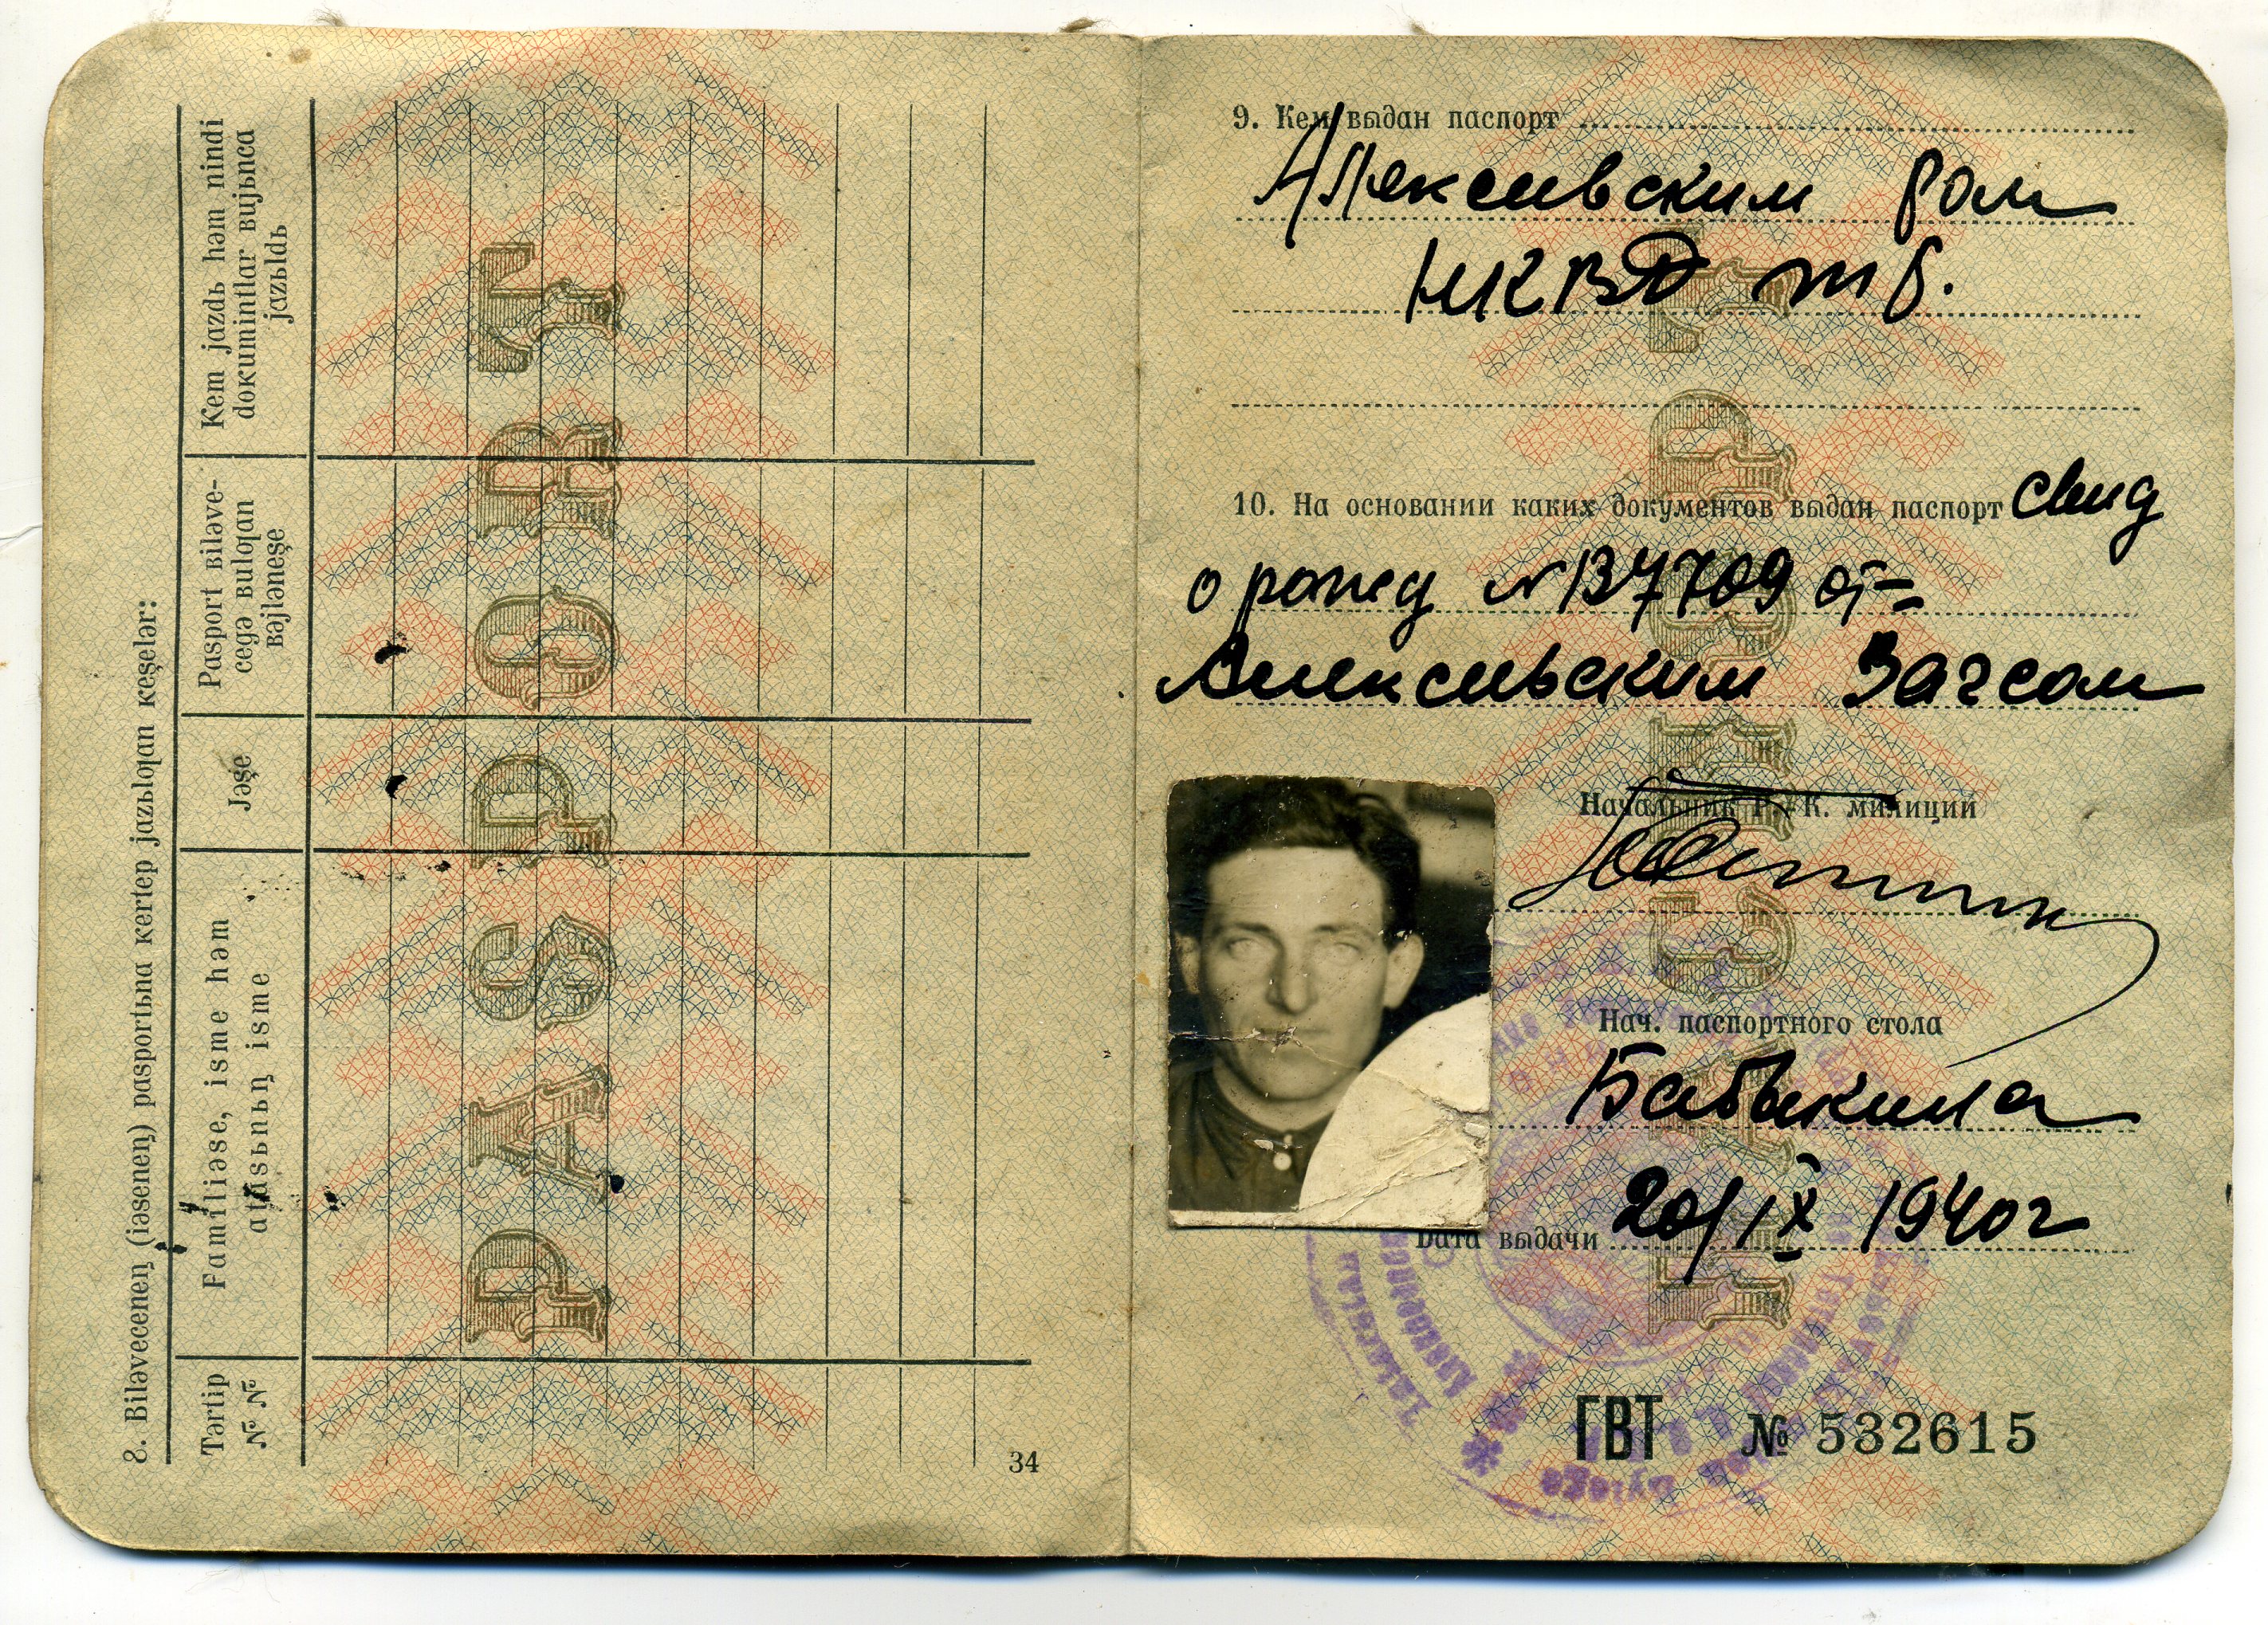 8. Biləvecenең (iəseneң) pasportьna kertep jazьlƣan keşelər:
Tərtip
№ №
Familiəse, isme həm
atasьnьң isme
Jəşe
Pasport biləve-
cegə bulƣan
bəjləneşe
Kem jazdь həm nindi
dokumintlar bujьnca
jazьldь
PASPORT
34
9. Кем выдан паспорт
Алексеевским ром
НКВД тб.
10. На основании каких документов выдан паспорт свид
о рожд № 137709 от
Алексеевским Загсом
Начальник Р.-К. милиции
Нач. паспортного стола
Бабыкина
Дата выдачи 20/IX 1940г
ПАСПОРТ
Tatarstan
ГВТ № 532615